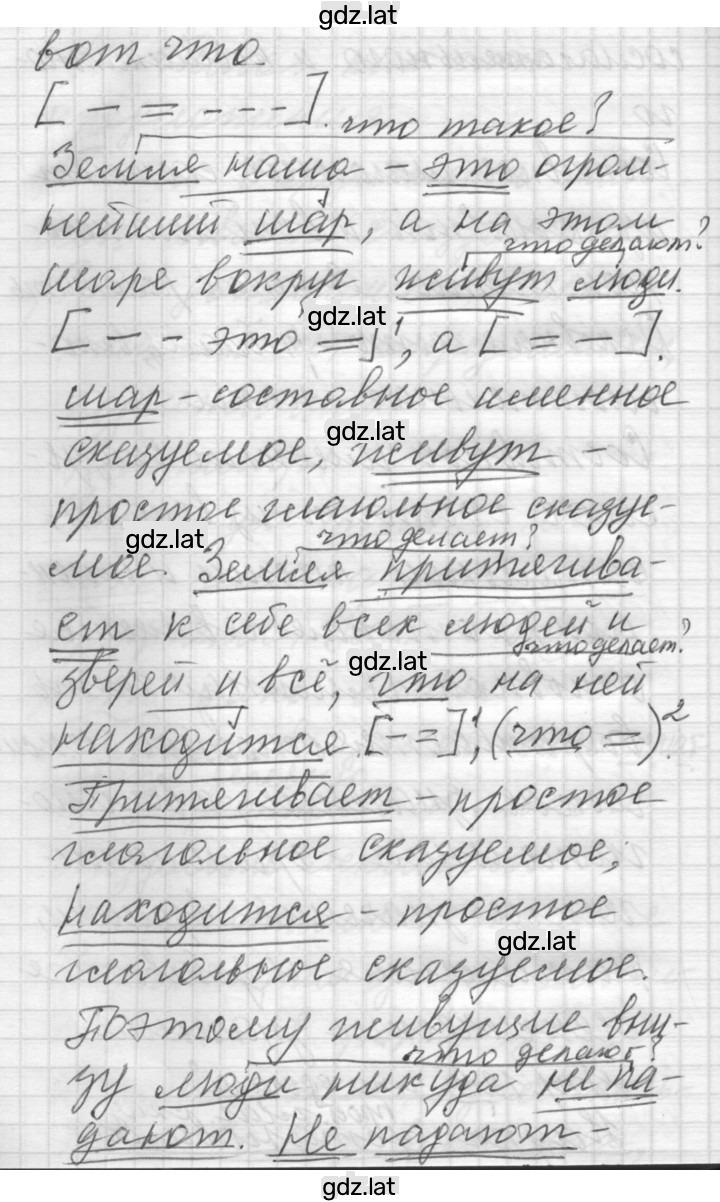 gdz.lat
вот что.
[ — = - - - ]. что такое?
Земля наша – это огром-
нейший шар, а на этом
что делают?
шаре вокруг живут люди.
gdz.lat
[ — - это = ]¹, а [ = — ].
шар – составное именное
gdz.lat
сказуемое, живут –
простое глагольное сказуе-
gdz.lat что делает?
мое. Земля притягива-
ет к себе всех людей и
gdz.lat что делает?
зверей и всё, что на ней
находится. [ - = ]¹, (что = )².
Притягивает – простое
глагольное сказуемое,
находится – простое
gdz.lat
глагольное сказуемое.
Поэтому живущие вни-
что делают?
зу люди никуда не па-
дают. Не падают –
gdz.lat